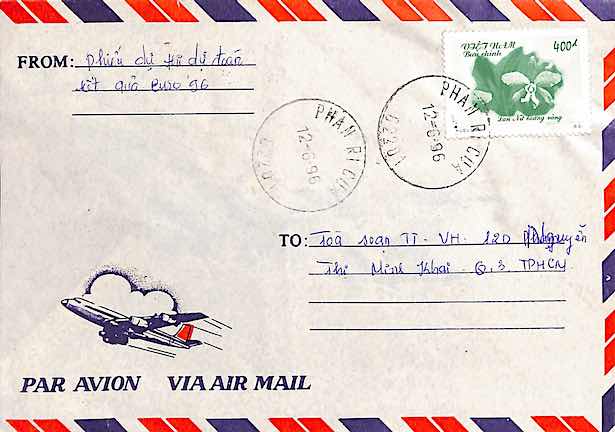 FROM: Phiếu dự thi dự đoán
kết quả Euro 96
VIỆT NAM
Bưu chính
400đ
Lan Nữ hoàng vàng
PHAN RI CUA
12-6-96
PHAN RI CUA
12-6-96
TO: Toà soạn TT - VH. 120 Nguyễn
Thị Minh Khai. Q.3 TPHCM
PAR AVION VIA AIR MAIL